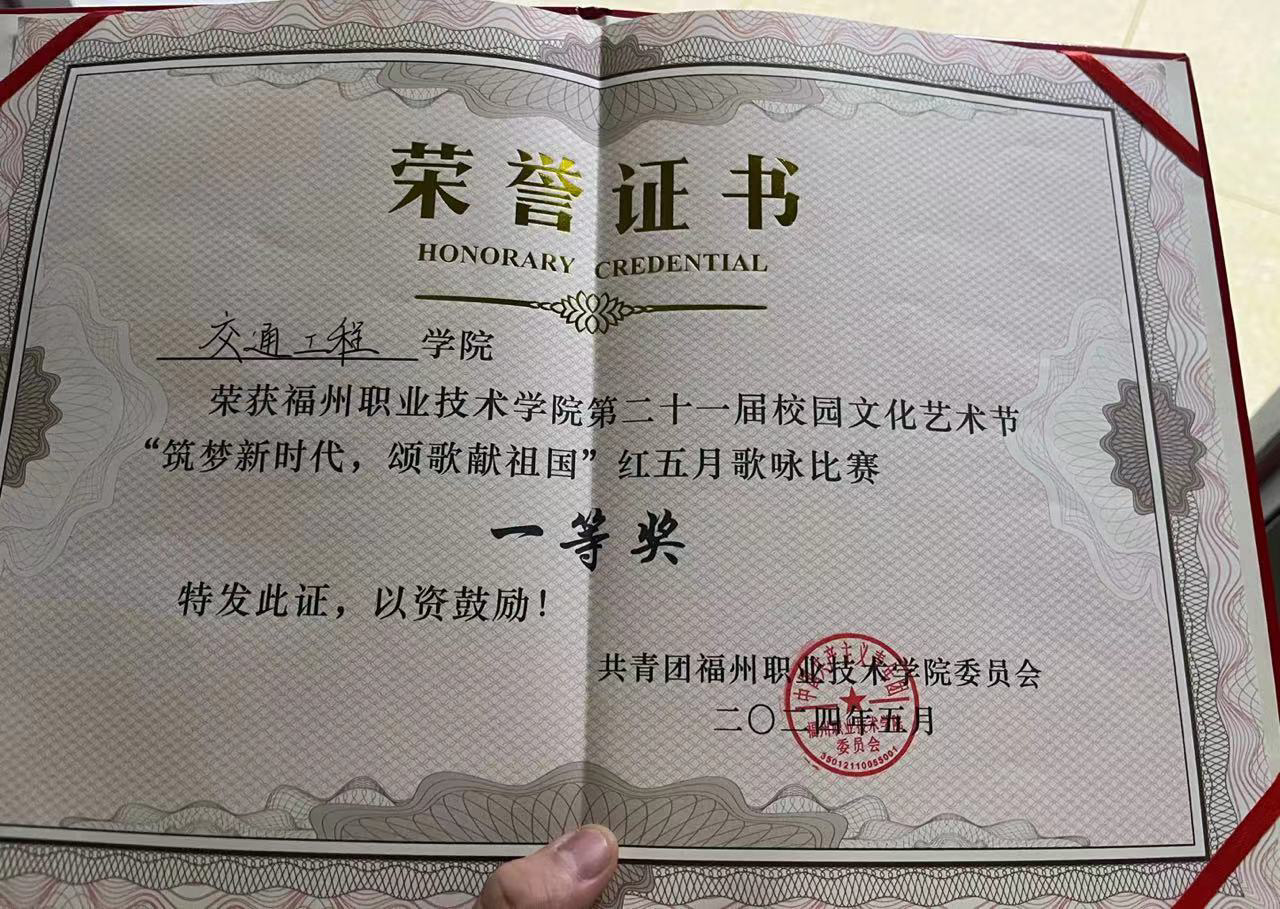 荣誉证书
HONORARY CREDENTIAL
交通工程学院
荣获福州职业技术学院第二十一届校园文化艺术节
“筑梦新时代，颂歌献祖国”红五月歌咏比赛
一等奖
特发此证，以资鼓励！
共青团福州职业技术学院委员会
二〇二四年五月
中国共产主义青年团
福州职业技术学院
委员会